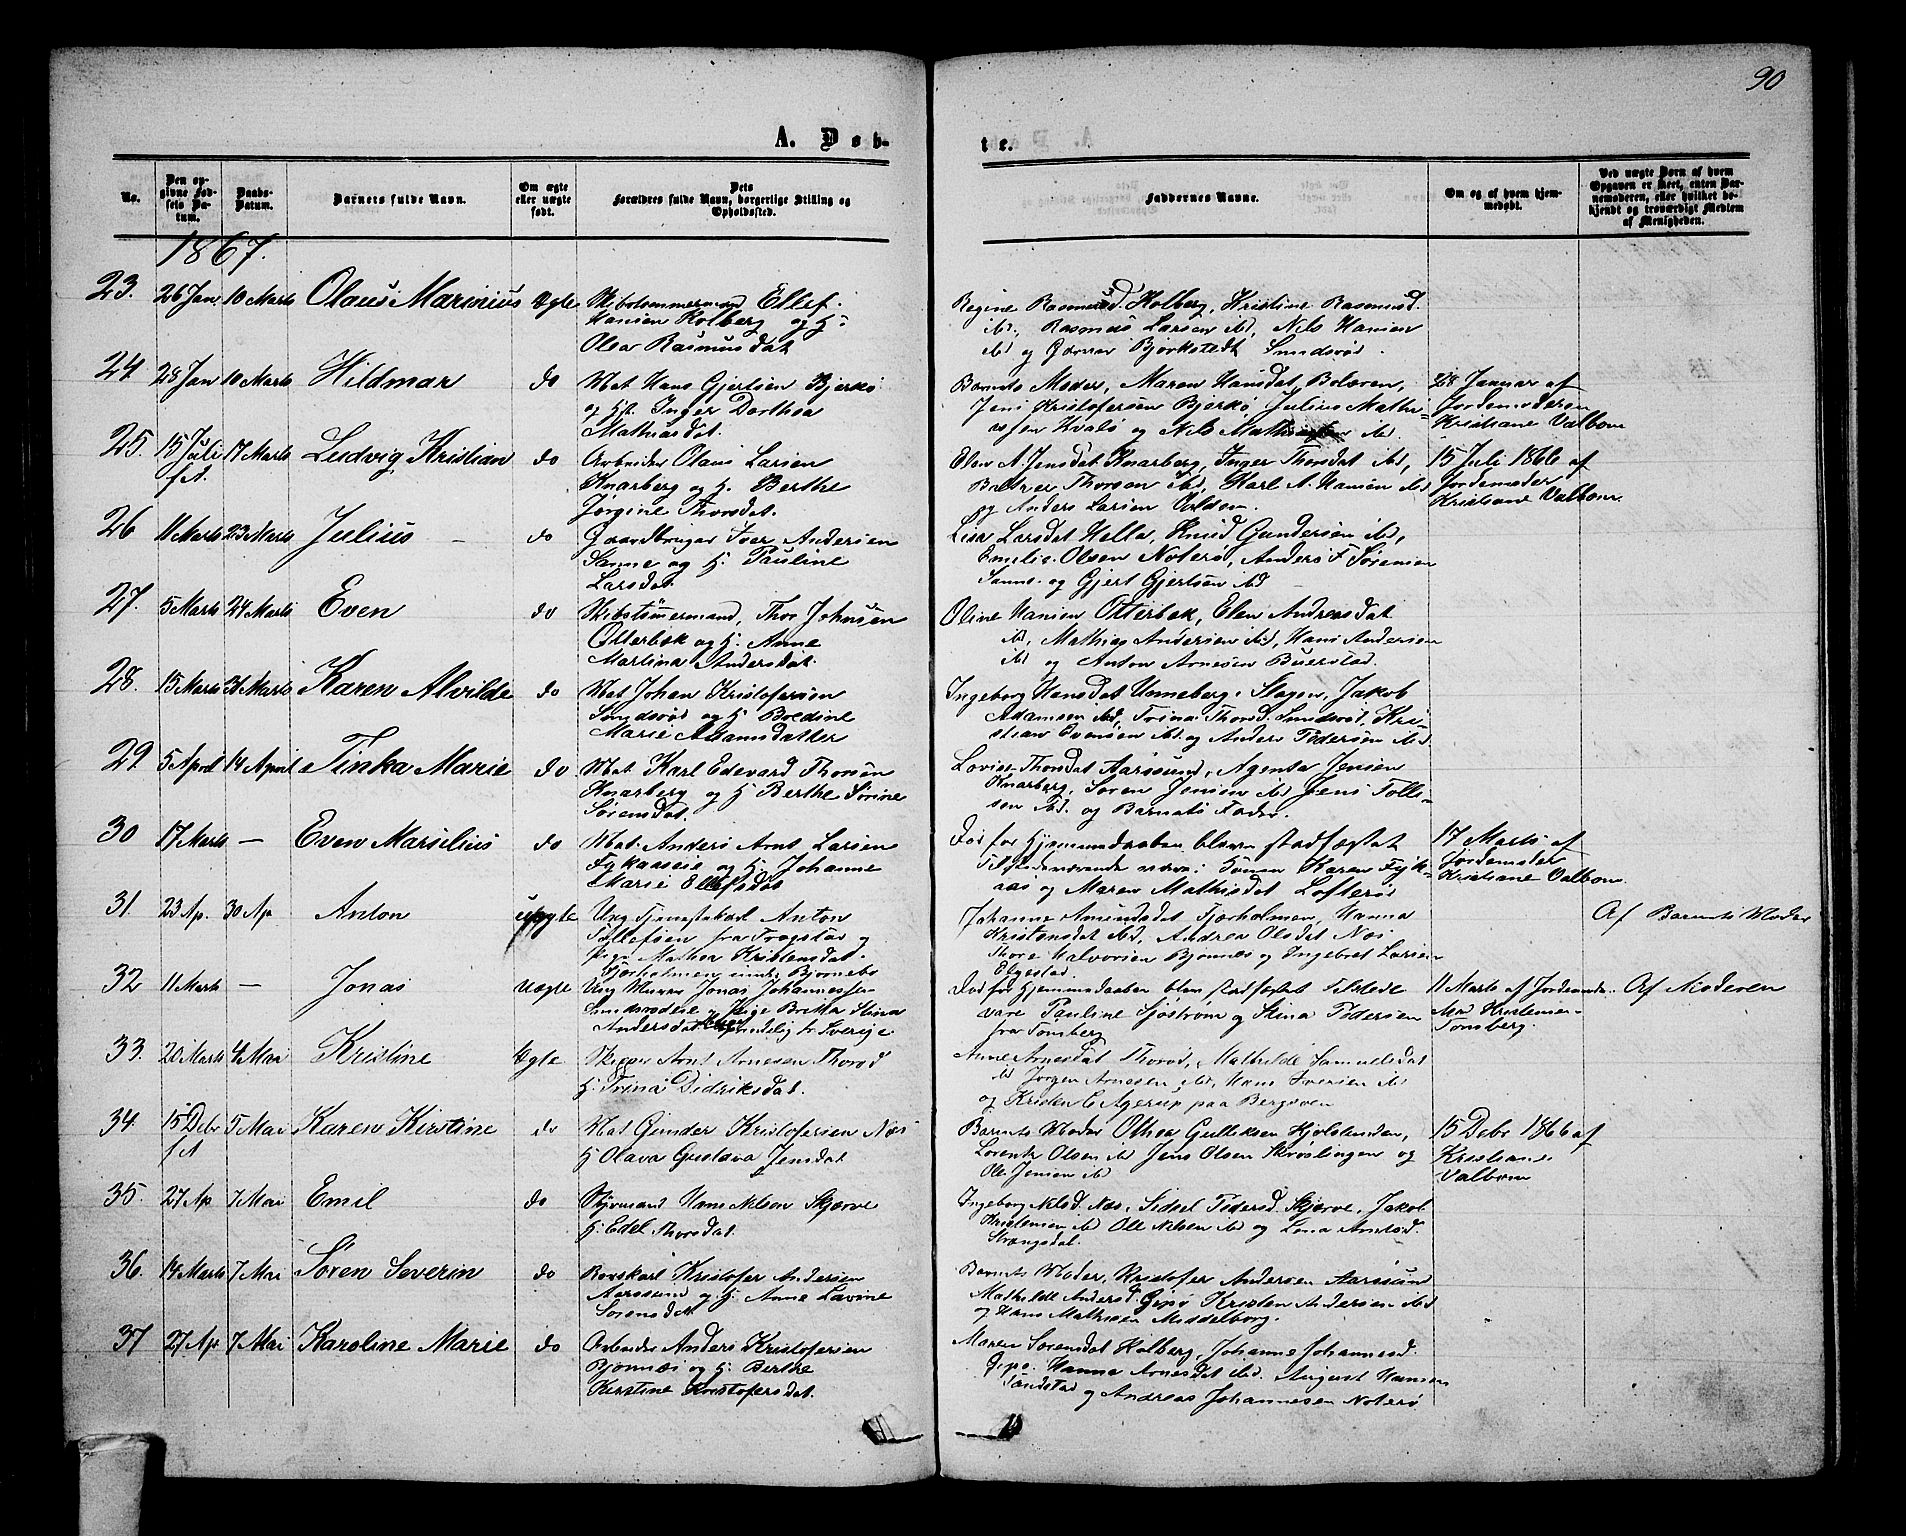 90
A. Døb-
te.
No.
Den opgivne Fødsels Datum.
Daabs-Datum.
Barnets fulde Navn.
Om ægte eller uægte født.
Dets Forældres fulde Navn, borgerlige Stilling og Opholdssted.
Faddernes Navne.
Om og af hvem hjemmedøbt.
Ved uægte Børn af hvem Opgaven er skeet, enten Barnemoderen, eller hvilket bekjendt og troværdigt Medlem af Menigheden.
1867.
23. 26 Jan 10 Marts Olaus Marinius Ægte Skibstømmermand Ellef
Hansen Kolberg og H.
Olea Rasmusdat
Regine Rasmusd. Holberg, Kristine Rasmusd.
ibd, Rasmus Larsen ibd, Nils Hansen
ibd og Gunner Bjørkstedt Sundsrød.
24. 28 Jan 10 Marts Hildmar do Mat. Hans Gjertsen Bjerkø
og H. Inger Dorthea
Mathiasdat.
Barnets Moder, Maren Hansdat, Bolæren,
Jens Kristofersen Bjerkø, Julius Mathi-
asen Hvalø og Nils Mathiasen ibd.
28 Januar af
Jordemoderen
Kristiane Valbom
25. 15 Juli 17 Marts Ludvig Kristian do Arbeider Olaus Larsen
f.A.
Knarberg og H. Berthe
Jørgine Thorsdat.
Elen A. Jensdat Knarberg, Inger Thorsdat ibd,
Thorsen ibd, Karl A. Hansen ibd
og Anders Larsen
15 Juli 1866 af
Jordemoder
Kristiane Valbom
26 11 Marts 23 Marts Julius - do Gaardbruger Iver Andersen
Sanne og H. Pauline
Larsdat.
Lisa Larsdat Hella, Knud Gundersen ibd,
Emelie Olsen Noterø, Anders F. Sørensen
Sanne og Gjert Gjertsen ibd
27. 5 Marts 24 Marts Even do Skibstømermand, Thor Johnsen
Otterbek og H. Anne
Martina Andersdat.
Oline Hansen Otterbek, Elen Andreasdat
ibd, Mathias Andersen ibd, Hans Andersen
ibd og Anton Arnesen Buerstad.
28. 15 Marts 31 Marts Karen Alvilde do Mat Johan Kristofersen
Sundsrød og H. Bredine
Marie Adamsdatter
Ingeborg Hansdat Unneberg i Slagen, Jakob
Adamsen ibd, Trina Thorsd. Sundsrød, Kri-
stian Evensen ibd. og Anders Pedersen ibd.
29. 5 April 14 April Tinka Marie do Mat. Karl Edevard Thorsen
Knarberg og H. Berthe Sørine
Sørensdat.
Lovise Thorsdat Aarssund, Agenta Jensen
Knarberg, Søren Jensen ibd Jens Tolle-
sen ibd. og Barnets Fader.
30 17 Marts - Even Marsilius do Mat. Anders Arnt Larsen
og H. Johanne
Marie Ellefsdat
Død før Hjemmedaaben bleven stadfæstet
Tilstedeværende være: Karen Fyk-
aas og Maren Mathisdat Lofterø
17 Marts af
Jordemoder
Kristiane Valbom.
31. 23 Ap. 30 Ap Anton uægte Ung Tjenestekarl Anton
Tollefsen fra Trøgstad og
Pige Mathea Kristensdat.
Tjørholmen
Johanne Amundsdat Tjørholmen, Hanna
Kristensdat ibd, Andrea Olsdat Næs
Thore Halvorsen Bjønnes og Ingebret Larsen
Elgestad.
Af Barnets Moder
32 11 Marts - Jonas Uægte Ung Murer Jonas Johannessen
Sundsrødeie og Pige Britta Stina
Andersdat
Død før Hjemmedaaben blev stadfæstet Tilstede
vare Pauline Sjøstrøm og Stina Pedersen
fra Tønsberg
11 Marts af Jordemode.
Mad Kristensen
Tønsberg.
Af Moderen
33. 20 Marts 4 Mai Kristine Ægte Skipper Arnt Arnesen Thorød
H. Trina Didriksdat.
Anne Arnesdat Thorød, Mathilde Samuelsdat
ibd Jørgen Arnesen ibd, Hans Iversen ibd
og Kristen C Agerup paa Bergsveen
34. 15 Debr 5 Mai Karen Kirstine do Mat Gunder Kristofersen Næs
f.A
H Olava Gustava Jensdat
Barnets Moder Othea Gulliksen Hjolstenden,
Lorents Olsen ibd Jens Olsen Skrøslingen og
Ole Jensen ibd
15 Debr 1866 af
Kristiane
Valbom
35. 27 Ap 7 Mai Emil do Styrmand Hans Nilsen Skjærve
H. Edel Thorsdat.
Ingeborg Nilsd. Næs, Sidsel Pedersd. Skjærve, Jakob
Kristensen ibd Ole Nilsen ibd og Lena Arntsd.
Strængsdal.
36. 14 Marts 7 Mai Søren Severin do Kristofer Andersen
Aarssund og H. Anne Lavine
Sørensdat
Barnets Moder, Kristofer Andersen Aarssund
Mathilde Andersd. Gipø Kristen Andersen ibd
og Hans Mathisen Middelborg.
37 27 Ap 7 Mai Karoline Marie do Arbeider Anders Kristofersen
Bjønnæs og H. Berthe
Kirstine Kristofersdat.
Maren Sørensdat Holberg, Johanne Johannesd.
Gipø. Hanna Arnesdat ibd. August Hansen
og Andreas Johannesen Noterø